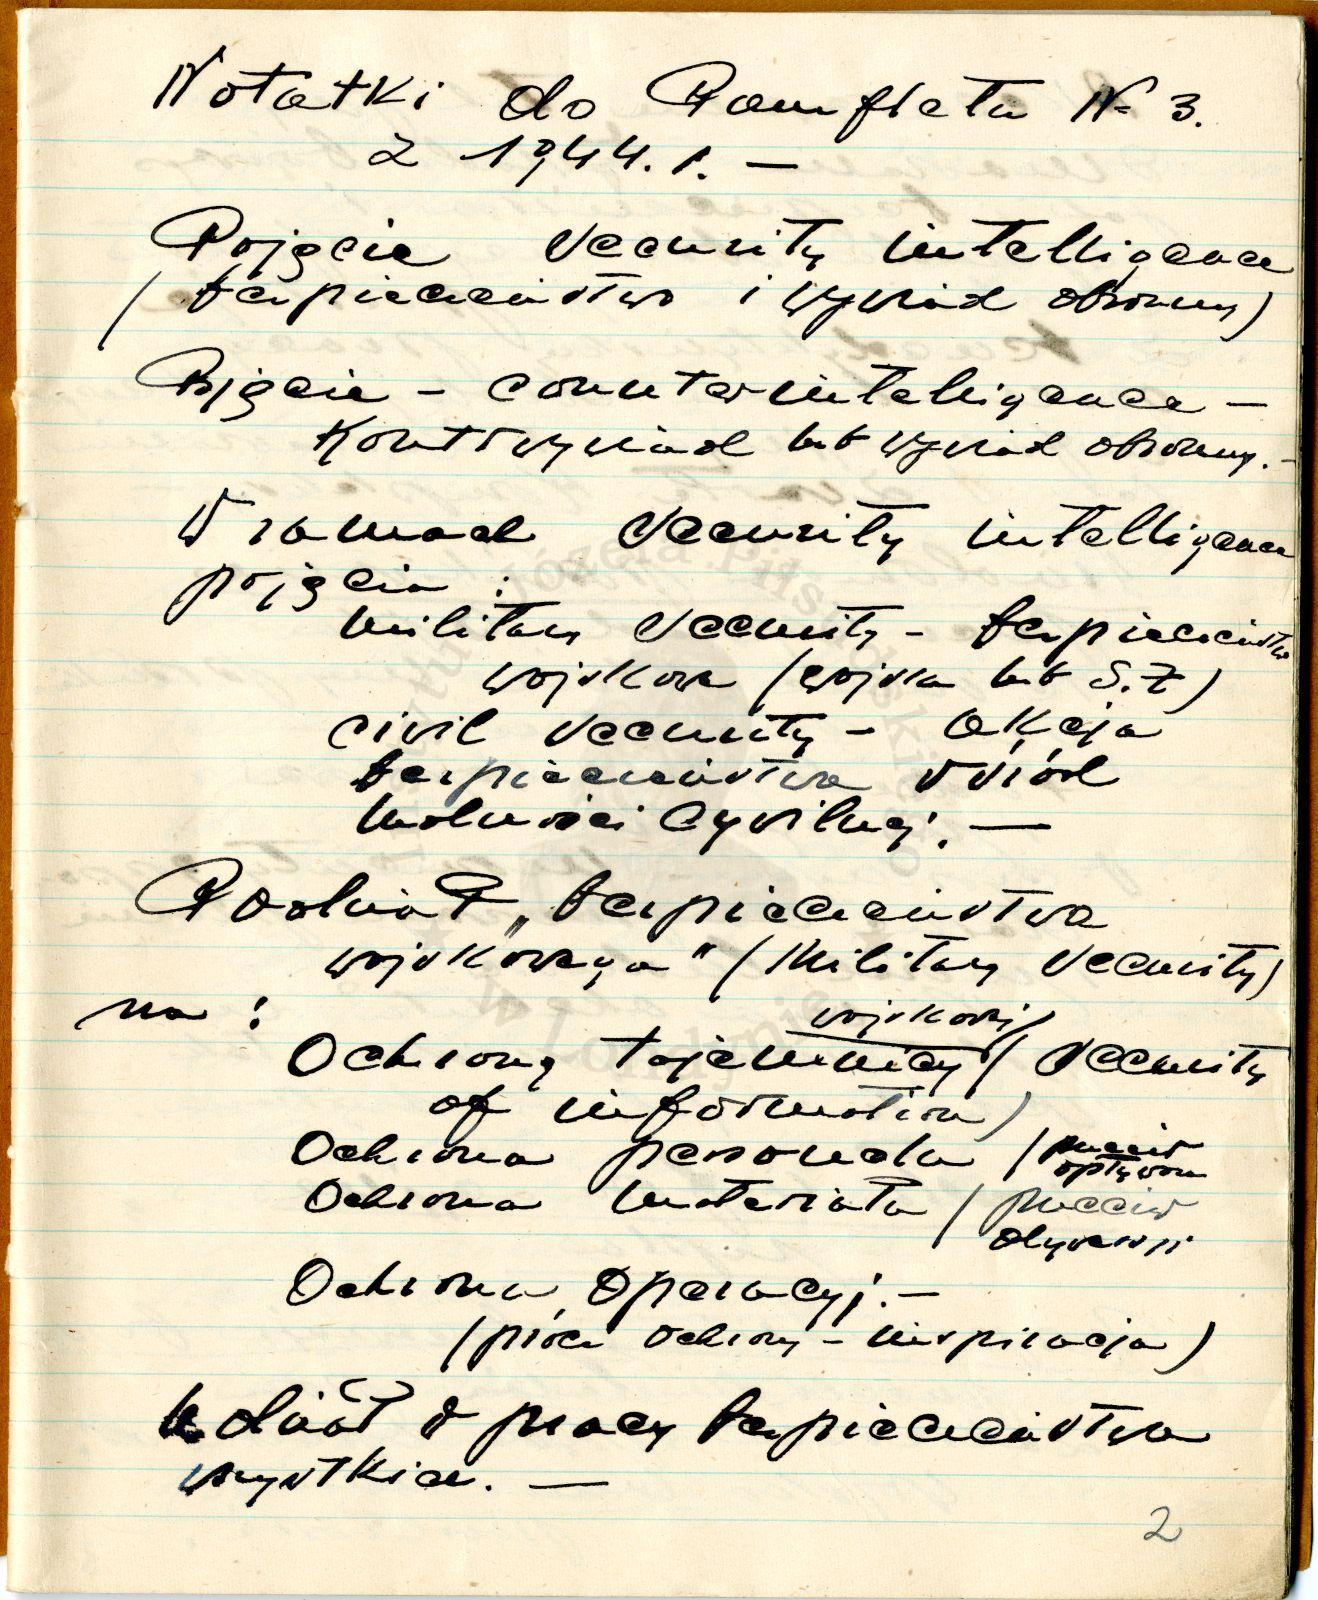 Notatki do Pamfleta № 3.
z 1944. r. —
Pojęcie security intelligence
(bezpieczeństwo i wywiad obronny)
Pojęcie – counterintelligence –
Kontrwywiad lub wywiad obronny. –
W ramach security intelligence
pojęcia :
military security – bezpieczeństwo
wojskowe (wojska lub S.Z)
civil security – akcja
bezpieczeństwa wśród
ludności cywilnej. —
Podział „bezpieczeństwa
wojskowego" (Military security)
na :
wojskowej
Ochronę tajemnicy (security
of information)
Ochrona personelu (przeciw
wpływom
Ochrona materiału (przeciw
dywersji
Ochrona operacyj. –
(prócz ochrony – inspiracja)
Udział w pracy bezpieczeństwa
wszystkich. —
2
Józefa Piłsudskiego
w Londynie